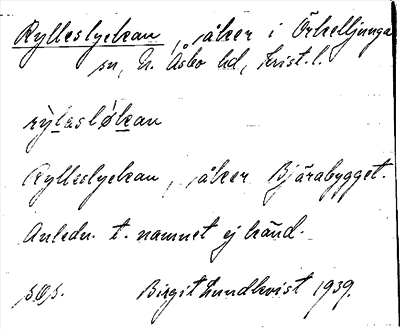 Rylleslyckan, åker i Örkelljunga
sn, N. Åsbo hd, Krist. l.
rỳlasløkan
Rylleslyckan, åker Bjärabygget.
Anledn. t. namnet ej känd.
Birgit Lundkvist 1939.